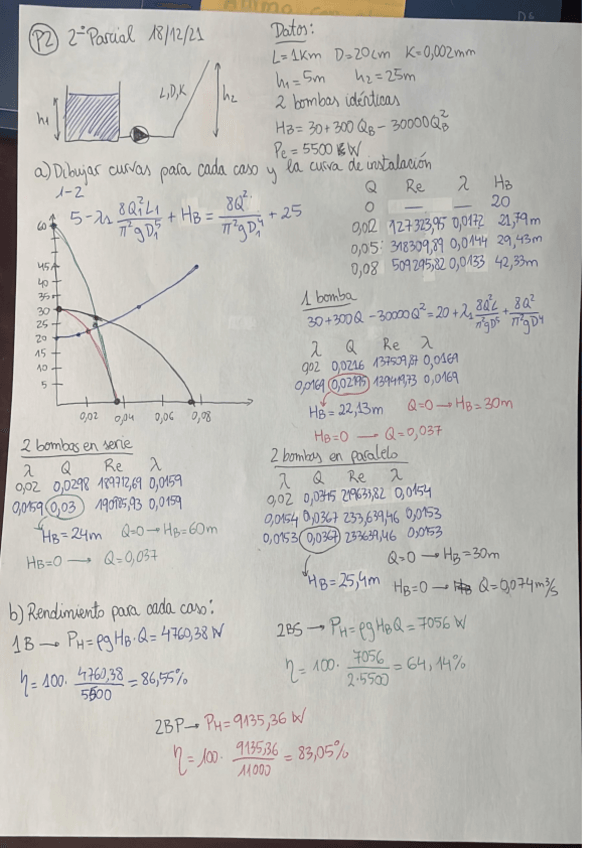 P2 2º Parcial 18/12/21
Datos:
L=1Km D=20cm K=0,002mm
h1=5m h2=25m
2 bombas idénticas
HB=30+300QB-30000QB²
Pe=5500 W
h1
L,D,K
h2
a) Dibujar curvas para cada caso y la curva de instalación
1-2
5-λ1 8Q1²L1/π²gD1⁵ + HB = 8Q²/π²gD1⁴ + 25
Q Re λ HB
0 — — 20
0,02 127323,95 0,0172 21,79m
0,05 318309,89 0,0144 29,43m
0,08 509295,82 0,0133 42,33m
60
45
40
35
30
25
20
15
10
5
0,02 0,04 0,06 0,08
1 bomba
30+300Q-30000Q²=20+λ1 8Q²L/π²gD⁵ + 8Q²/π²gD⁴
λ Q Re λ
0,02 0,0216 137509,87 0,0169
0,0169 0,02195 139419,73 0,0169
HB=22,13m Q=0→HB=30m
HB=0 → Q=0,037
2 bombas en serie
λ Q Re λ
0,02 0,0298 189712,69 0,0159
0,0159 0,03 190985,93 0,0159
HB=24m Q=0→HB=60m
HB=0 → Q=0,037
2 bombas en paralelo
λ Q Re λ
0,02 0,0345 219633,82 0,0154
0,0154 0,0367 233639,46 0,0153
0,0153 0,0367 233639,46 0,0153
Q=0→HB=30m
HB=25,4m HB=0→ Q=0,074m³/s
b) Rendimiento para cada caso:
1B → PH=ρgHB·Q=4760,38 W
η=100· 4760,38/5500 =86,55%
2BS → PH=ρgHBQ=7056 W
η=100· 7056/2·5500 =64,14%
2BP→ PH=9135,36 W
η=100· 9135,36/11000 = 83,05%